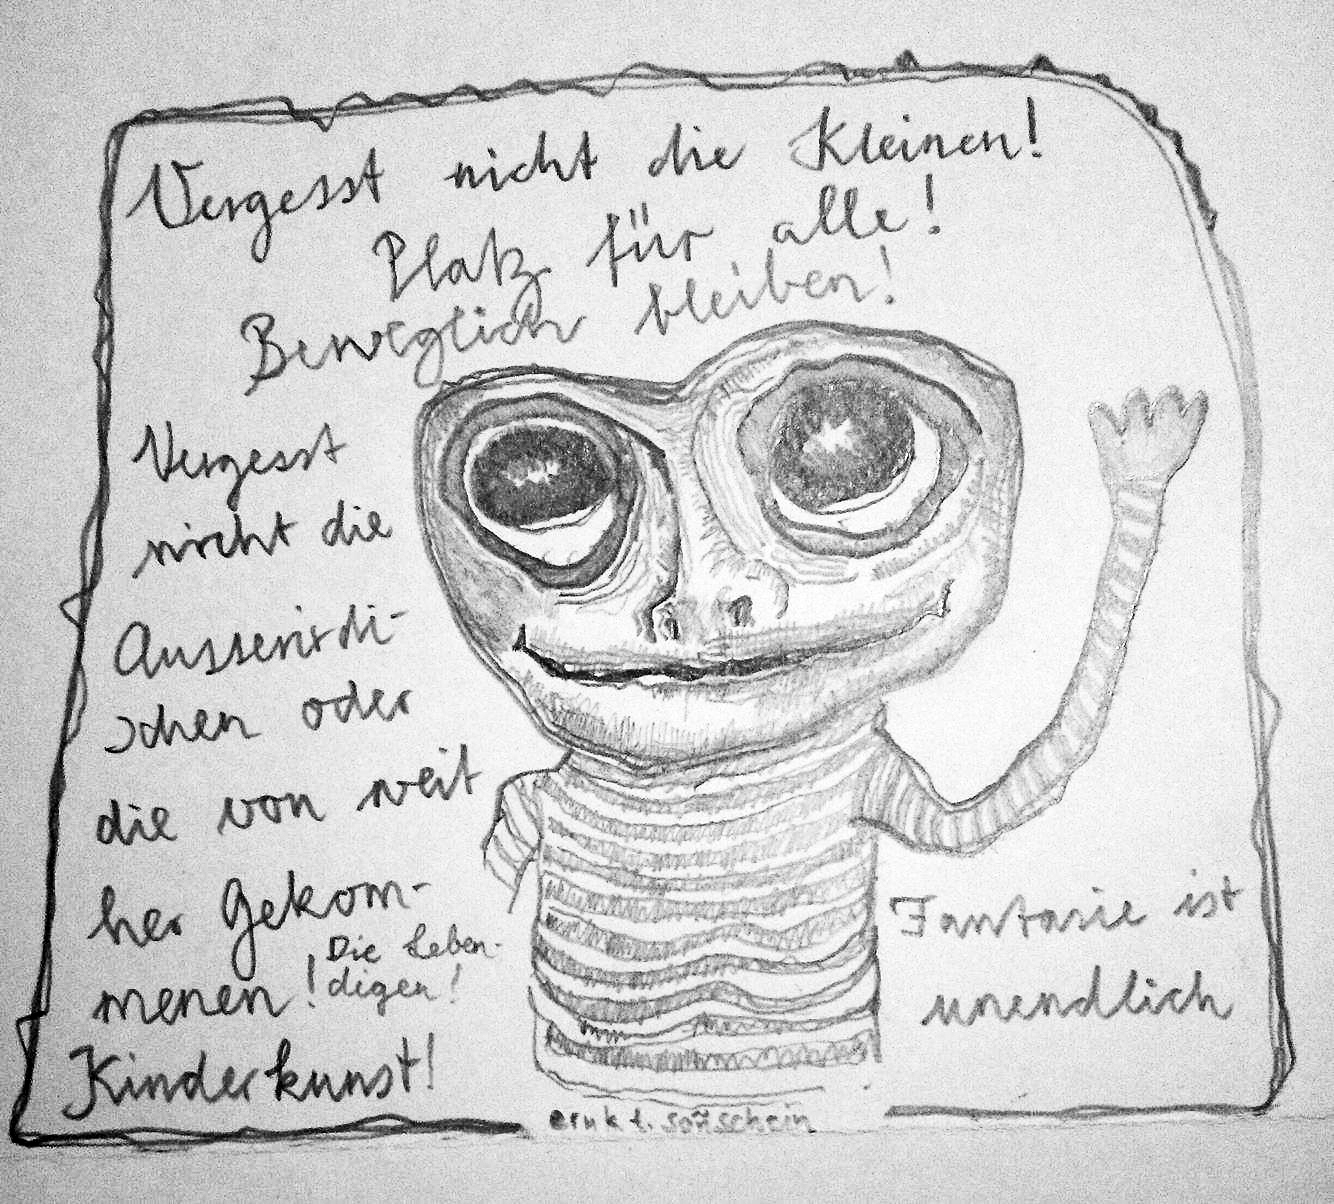 Vergesst nicht die Kleinen!
Platz für alle!
Beweglich bleiben!
Vergesst
nicht die
Ausserirdi-
schen oder
die von weit
her Gekom-
menen!
Die Leben-
digen!
Kinderkunst!
Fantasie ist
unendlich